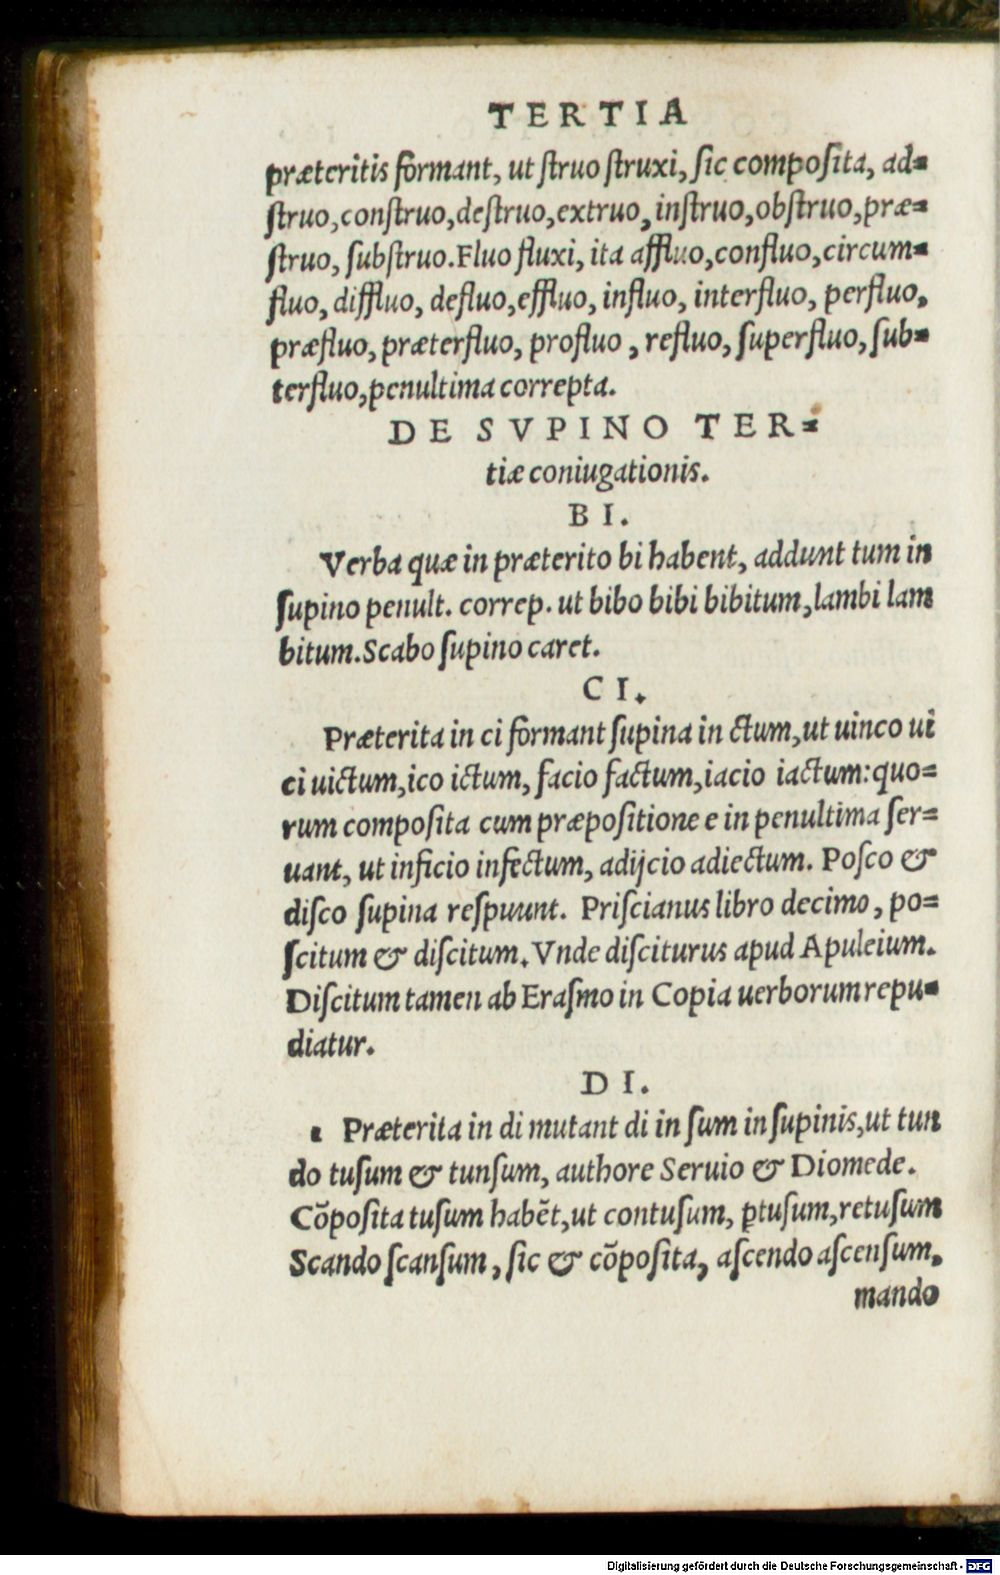 TERTIA
præteritis formant, ut ſtruo ſtruxi, ſic compoſita, ad-
ſtruo, conſtruo, deſtruo, extruo, inſtruo, obſtruo, præ-
ſtruo, ſubſtruo. Fluo fluxi, ita affluo, confluo, circum-
fluo, diffluo, defluo, effluo, influo, interfluo, perfluo,
præfluo, præterfluo, profluo, refluo, ſuperfluo, ſub-
terfluo, penultima correpta.
DE SVPINO TER-
tiæ coniugationis.
BI.
Verba quæ in præterito bi habent, addunt tum in
ſupino penult. correp. ut bibo bibi bibitum, lambi lam
bitum. Scabo ſupino caret.
CI.
Præterita in ci formant ſupina in ctum, ut uinco ui
ci uictum, ico ictum, facio factum, iacio iactum: quo-
rum compoſita cum præpoſitione e in penultima ſer-
uant, ut inficio infectum, adijcio adiectum. Poſco &
diſco ſupina reſpuunt. Priſcianus libro decimo, po-
ſcitum & diſcitum. Vnde diſciturus apud Apuleium.
Diſcitum tamen ab Eraſmo in Copia uerborum repu-
diatur.
DI.
Præterita in di mutant di in ſum in ſupinis, ut tun
do tuſum & tunſum, authore Seruio & Diomede.
Cõpoſita tuſum habẽt, ut contuſum, ꝑtuſum, retuſum
Scando ſcanſum, ſic & cõpoſita, aſcendo aſcenſum,
mando
Digitalisierung gefördert durch die Deutsche Forschungsgemeinschaft - DFG